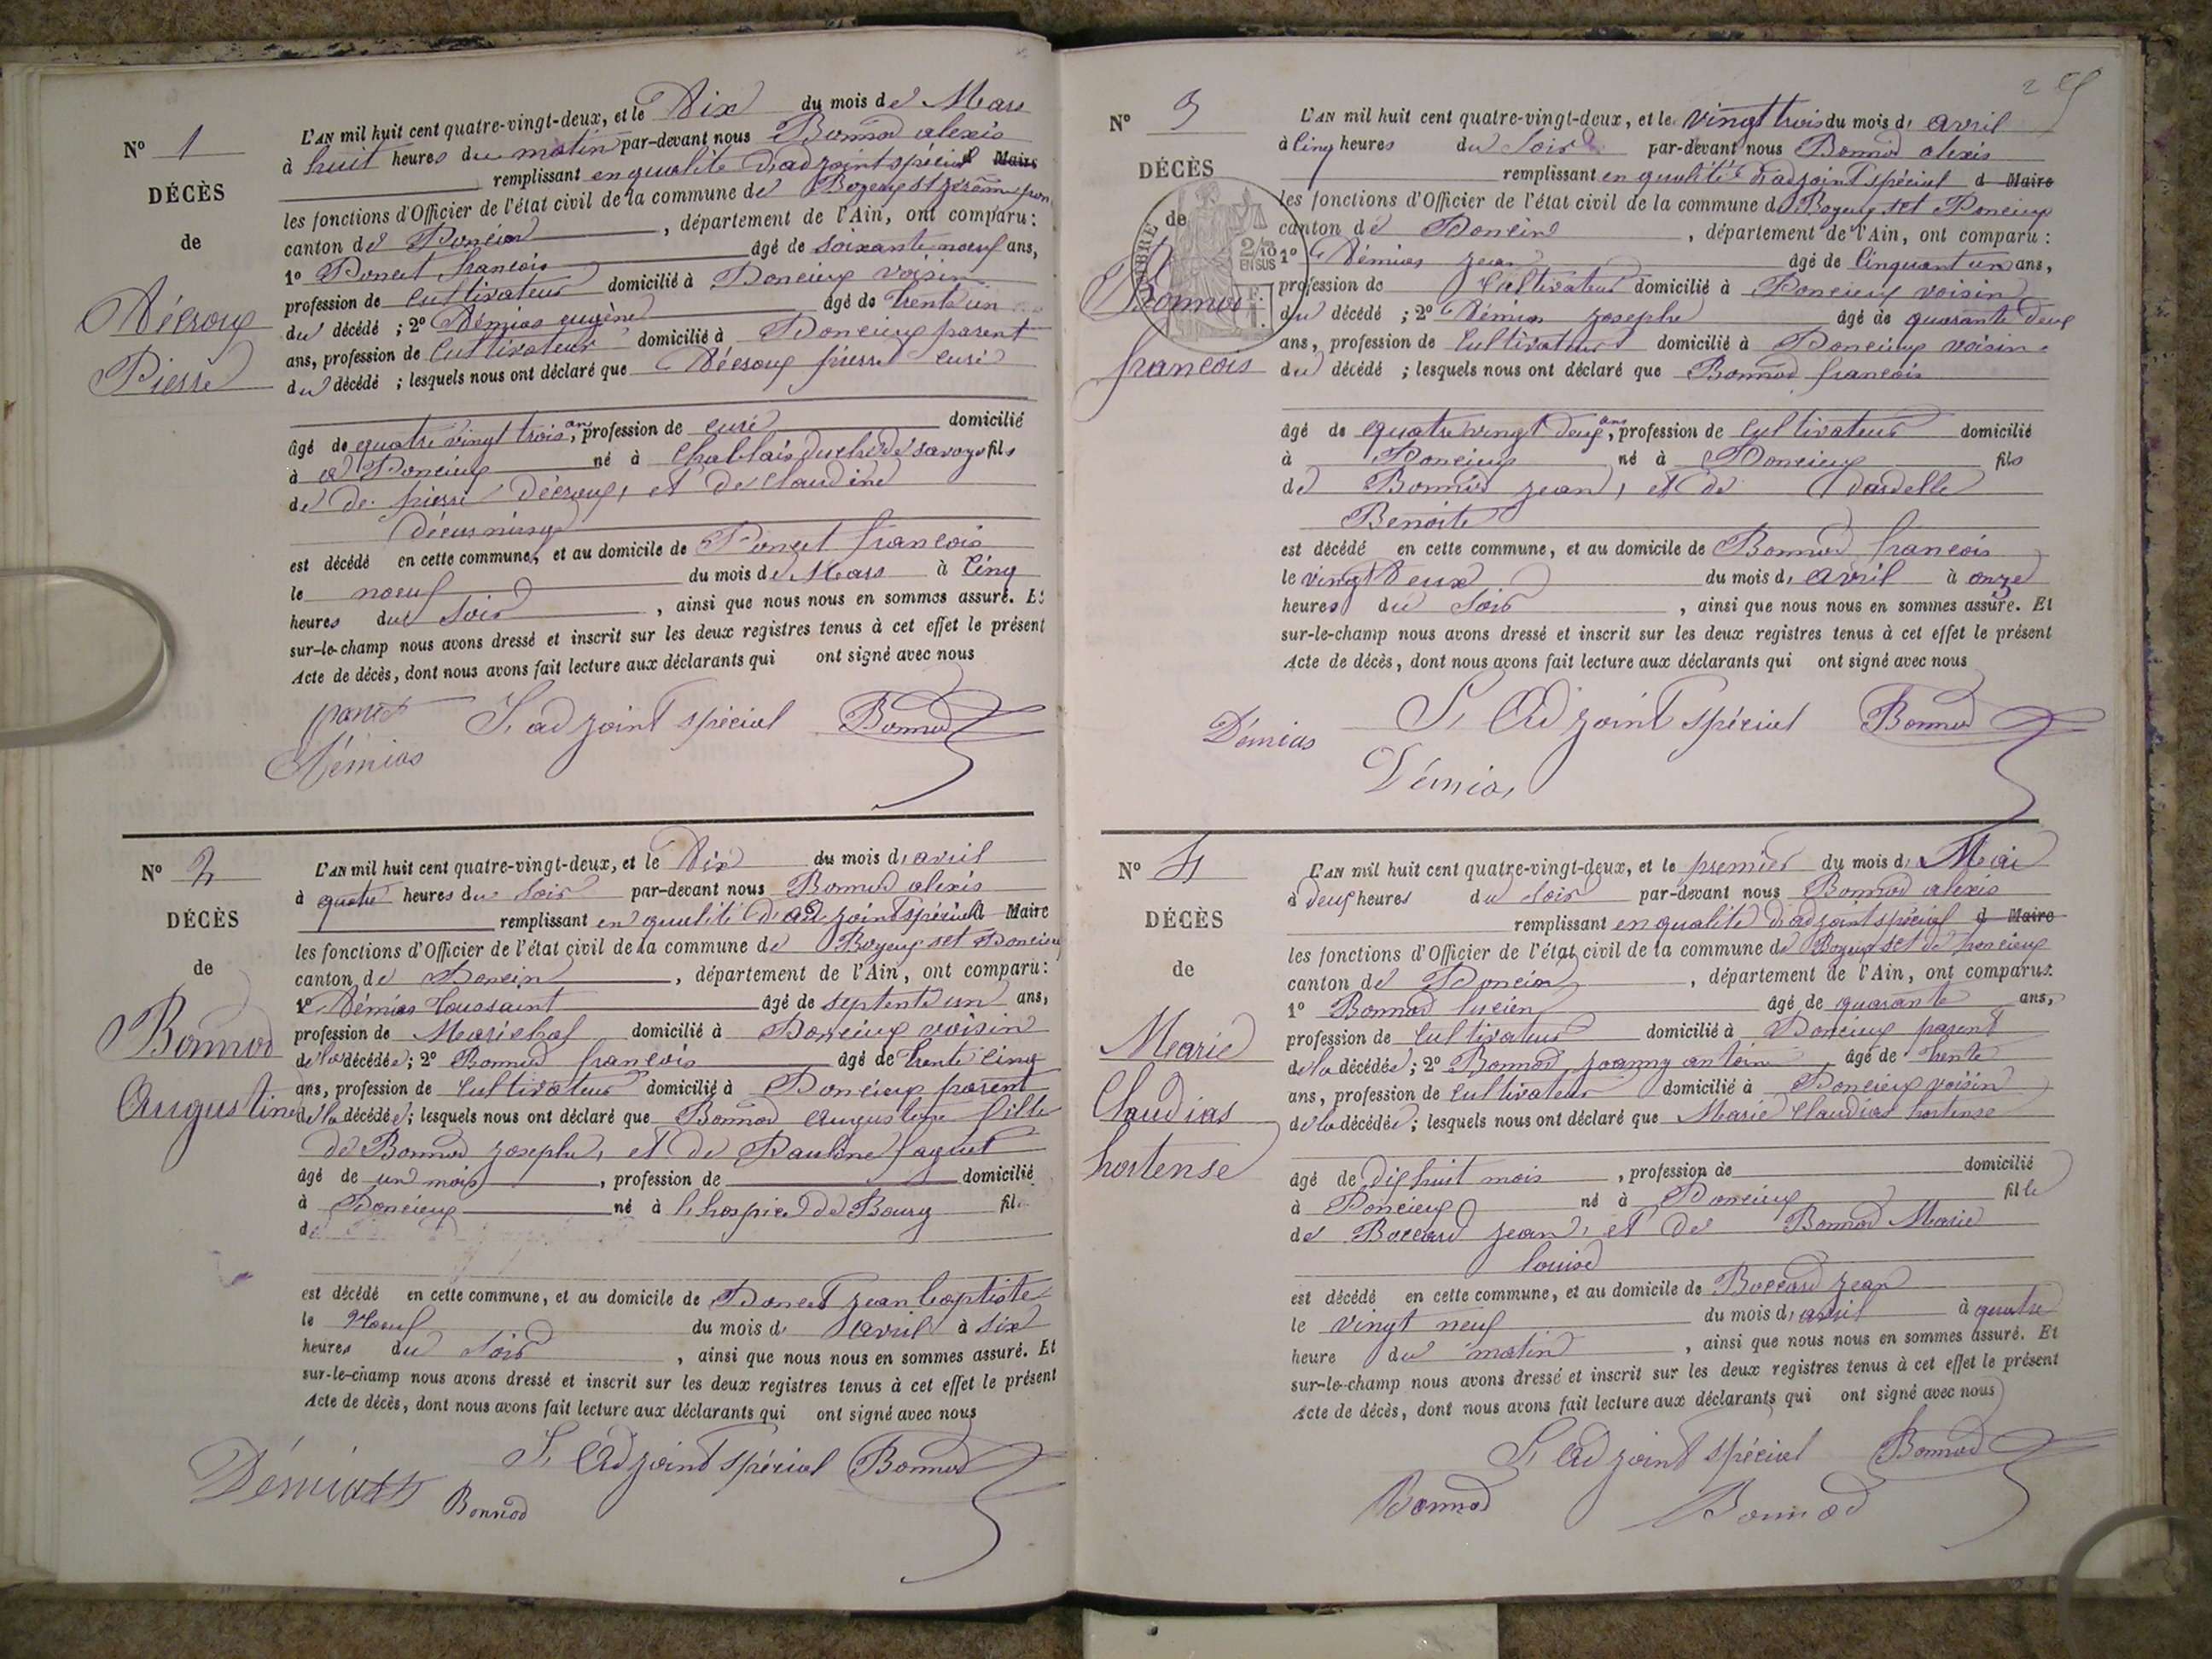 N° 1
DÉCÈS
de
Décroux
Pierre
L'AN mil huit cent quatre-vingt-deux, et le Dix du mois de Mars
à huit heures du matin par-devant nous Bonnod alexis
remplissant en qualité d'adjoint spécial Maire
les fonctions d'Officier de l'état civil de la commune de Boyeux St jérôme
canton de Poncin, département de l'Ain, ont comparu :
1° Poncet francois âgé de soixante noeuf ans,
profession de Cultivateur domicilié à Poncieux voisin
du décédé ; 2° Démias eugène âgé de trente un
ans, profession de Cultivateur domicilié à Poncieux parent
du décédé ; lesquels nous ont déclaré que Décroux pierre curé
âgé de quatre vingt trois ans, profession de curé domicilié
à a Poncieux né à Chablais duché de savoye fils
de de pierre Décroux, et de Claudine
est décédé en cette commune, et au domicile de Poncet francois
le noeuf du mois de Mars à Cinq
heures du Soir, ainsi que nous nous en sommes assuré. Et
sur-le-champ nous avons dressé et inscrit sur les deux registres tenus à cet effet le présent
Acte de décès, dont nous avons fait lecture aux déclarants qui ont signé avec nous
poncet L'adjoint spécial Bonnod
Démias
N° 2
DÉCÈS
de
Bonnod
Augustine
L'AN mil huit cent quatre-vingt-deux, et le Dix du mois d'avril
à quatre heures du Soir par-devant nous Bonnod alexis
remplissant en qualité d'adjoint spécial d Maire
les fonctions d'Officier de l'état civil de la commune de Boyeux set Poncieux
canton de Poncin, département de l'Ain, ont comparu :
1° Démias toussaint âgé de septente un ans,
profession de Maréchal domicilié à Poncieux voisin
de la décédée ; 2° Bonnod francois âgé de trente cinq
ans, profession de Cultivateur domicilié à Poncieux parent
de la décédée ; lesquels nous ont déclaré que Bonnod Augustine fille
de Bonnod joseph, et de Pauline
âgé de un mois, profession de domicilié
à Poncieux né à l'hospice de Bourg fil
de
est décédé en cette commune, et au domicile de Poncet jean baptiste
le Noeuf du mois d' Avril à six
heures du Soir, ainsi que nous nous en sommes assuré. Et
sur-le-champ nous avons dressé et inscrit sur les deux registres tenus à cet effet le présent
Acte de décès, dont nous avons fait lecture aux déclarants qui ont signé avec nous
L'Adjoint spécial Bonnod
Bonnod
N° 3
DÉCÈS
de
Bonnod
francois
TIMBRE
2/10 EN SUS
L'AN mil huit cent quatre-vingt-deux, et le vingt trois du mois d' avril
à Cinq heures du Soir par-devant nous Bonnod alexis
remplissant en qualité d'adjoint spécial d Maire
les fonctions d'Officier de l'état civil de la commune de Boyeux set Poncieux
canton de Poncin, département de l'Ain, ont comparu :
1° Démias jean âgé de Cinquant un ans,
profession de Cultivateur domicilié à Poncieux voisin
du décédé ; 2° Démias joseph âgé de quarante deux
ans, profession de Cultivateur domicilié à Poncieux voisin
du décédé ; lesquels nous ont déclaré que Bonnod francois
âgé de quatre vingt deux ans, profession de Cultivateur domicilié
à Poncieux né à Poncieux fils
de Bonnod jean, et de Dardelle
Benoite
est décédé en cette commune, et au domicile de Bonnod francois
le vingt Deux du mois d' avril à onze
heures du Soir, ainsi que nous nous en sommes assuré. Et
sur-le-champ nous avons dressé et inscrit sur les deux registres tenus à cet effet le présent
Acte de décès, dont nous avons fait lecture aux déclarants qui ont signé avec nous
L'Adjoint spécial Bonnod
Démias
Démias
N° 4
DÉCÈS
de
Marie
Claudias
hortense
L'AN mil huit cent quatre-vingt-deux, et le premier du mois d' Mai
à deux heures du Soir par-devant nous Bonnod alexis
remplissant en qualité d'adjoint spécial d Maire
les fonctions d'Officier de l'état civil de la commune de Boyeux set de Poncieux
canton de Poncin, département de l'Ain, ont comparu :
1° Bonnod lucien âgé de quarante ans,
profession de Cultivateur domicilié à Poncieux parent
de la décédée ; 2° Bonnod joanny antoine âgé de trente
ans, profession de Cultivateur domicilié à Poncieux voisin
de la décédée ; lesquels nous ont déclaré que Marie Claudias hortense
âgé de dix huit mois, profession de domicilié
à Poncieux né à Poncieux fille
de Boccard jean, et de Bonnod Marie
louise
est décédé en cette commune, et au domicile de Boccard jean
le vingt neuf du mois d' avril à quatre
heure du matin, ainsi que nous nous en sommes assuré. Et
sur-le-champ nous avons dressé et inscrit sur les deux registres tenus à cet effet le présent
Acte de décès, dont nous avons fait lecture aux déclarants qui ont signé avec nous
L'Adjoint spécial Bonnod
Bonnod Bonnod